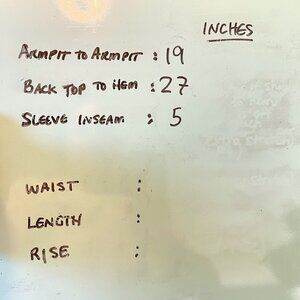 INCHES
ARMPIT TO ARMPIT : 19
BACK TOP TO HEM : 27
SLEEVE INSEAM : 5
WAIST :
LENGTH :
RISE :